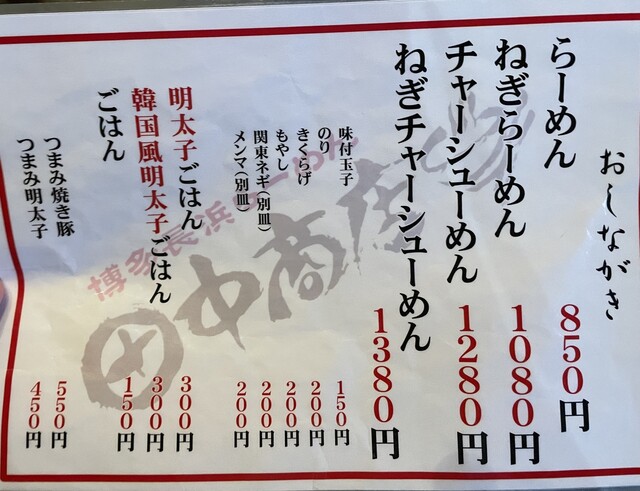 おしながき
らーめん 850円
ねぎらーめん 1080円
チャーシューめん 1280円
ねぎチャーシューめん 1380円
味付玉子 150円
のり 200円
きくらげ 200円
もやし 200円
関東ネギ(別皿) 200円
メンマ(別皿) 200円
明太子ごはん 300円
韓国風明太子ごはん 300円
ごはん 150円
つまみ焼き豚 550円
つまみ明太子 450円
博多長浜らーめん
田中商店